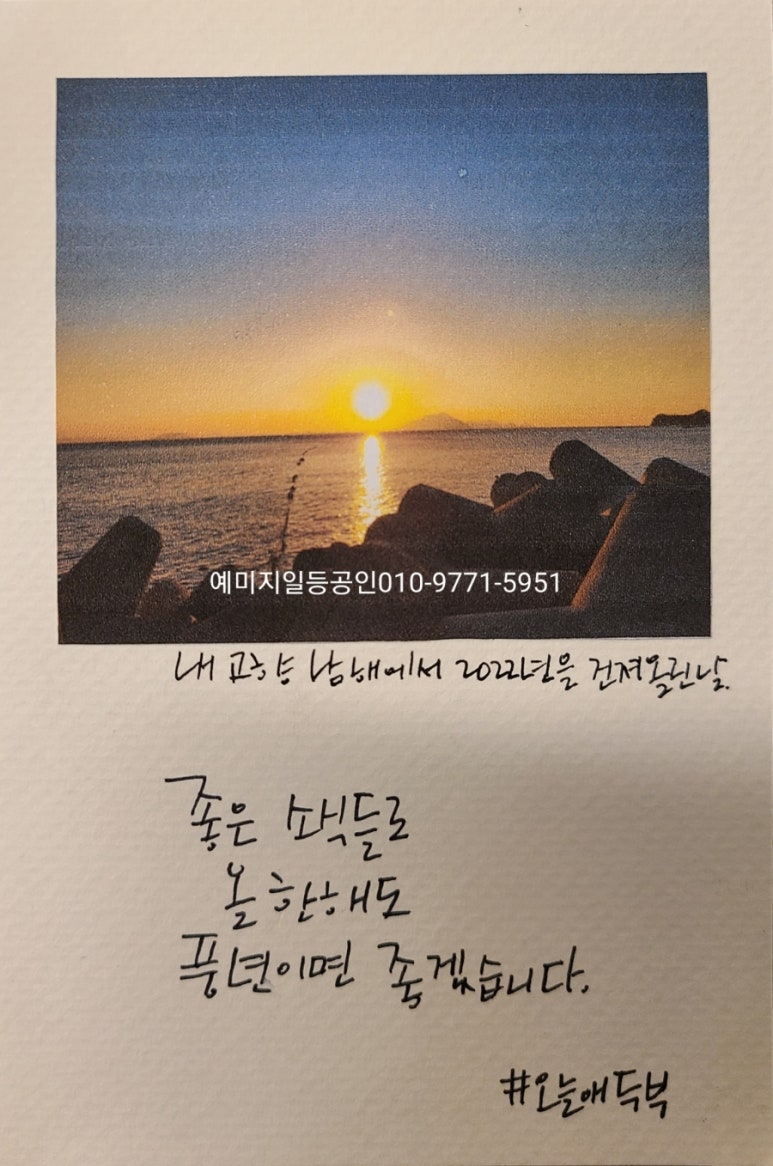 예미지일등공인010-9771-5951
내 고향 남해에서 2022년을 건져올린날.
좋은 소식들로
올 한해도
풍년이면 좋겠습니다.
#오늘애두부